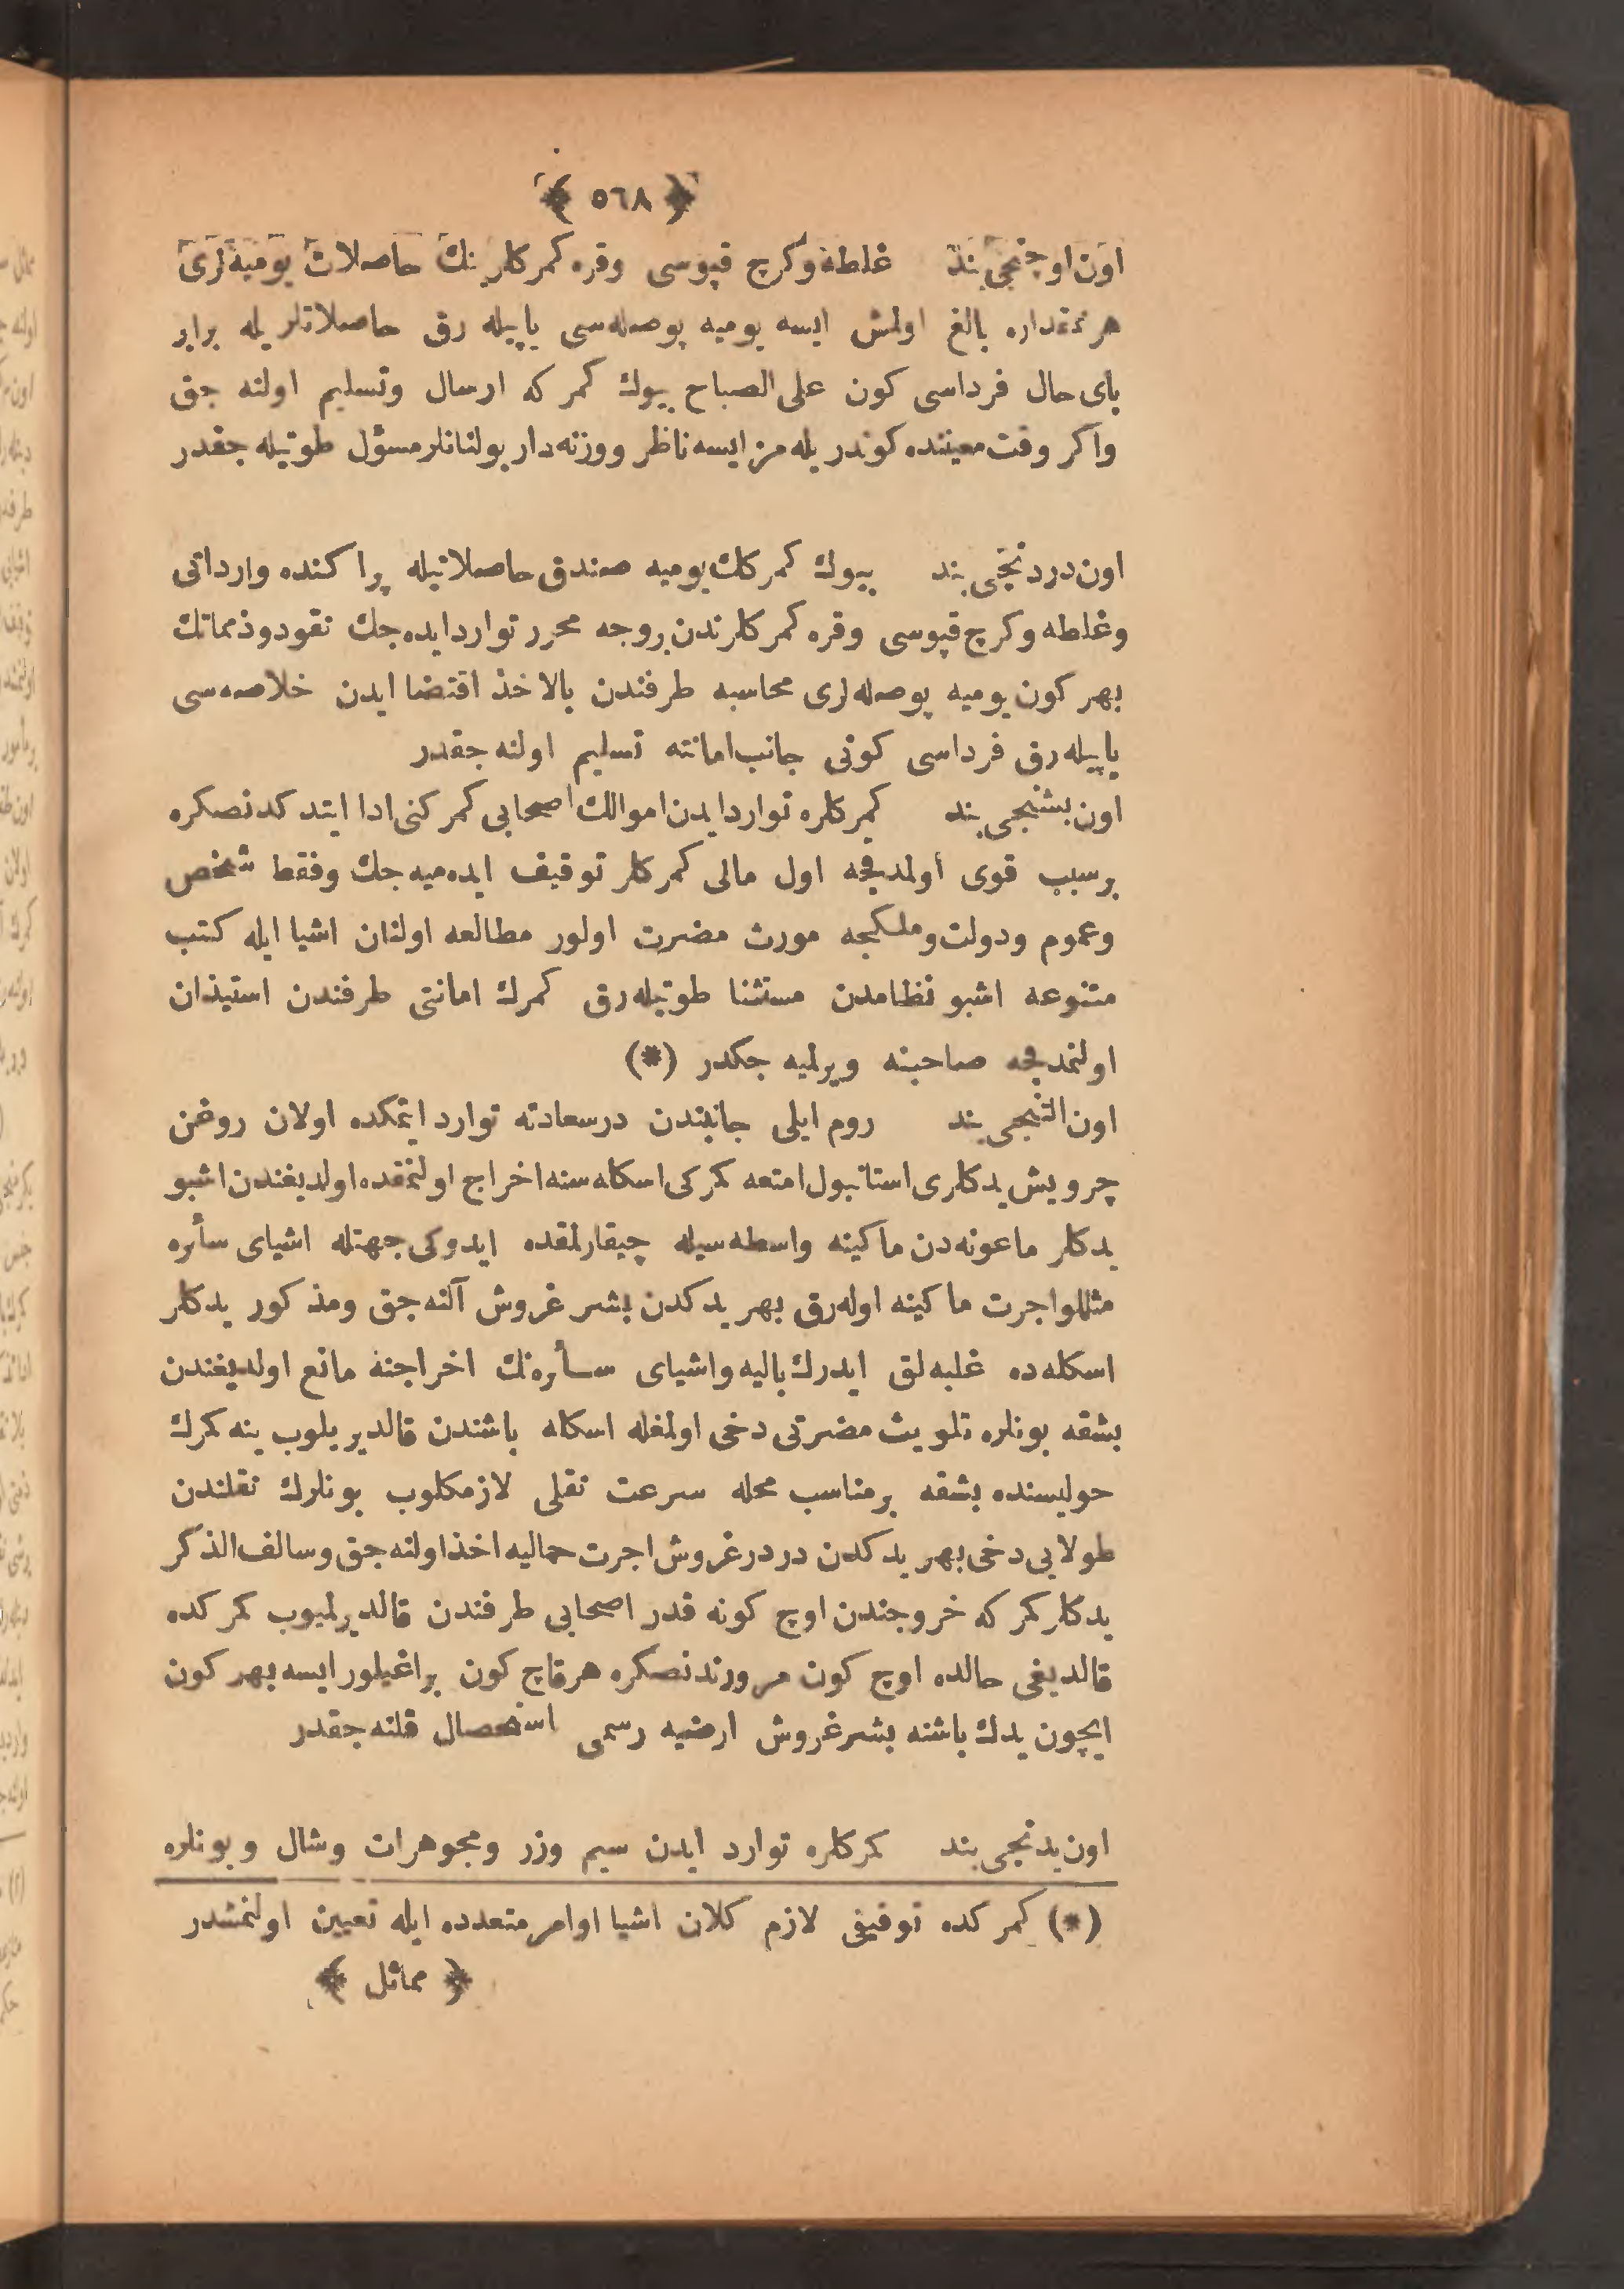 ﴿ ٥٦٨ ﴾
اون اوچنجی بند غلطه وکرچ قپوسی وقره کمرکلرینك حاصلات یومیه لری
هر نمقداره بالغ اولمش ایسه یومیه پوصله سی یاپیله رق حاصلاتلریله برابر
بای حال فرداسی کون علی الصباح بیوك کمرکه ارسال وتسلیم اولنه جق
واکر وقت معیننده کوندریله مز ایسه ناظر ووزنه دار بولنانلر مسؤل طوتیله جقدر
اون دردنجی بند بیوك کمرکك یومیه صندق حاصلاتیله پراکنده وارداتی
وغلطه وکرچ قپوسی وقره کمرکلرندن بروجه محرر توارد ایده جك نقود وذمماتك
بهر کون یومیه پوصله لری محاسبه طرفندن بالاخذ اقتضا ایدن خلاصه سی
یاپیله رق فرداسی کونی جانب امانته تسلیم اولنه جقدر
اون بشنجی بند کمرکلره توارد ایدن اموالك اصحابی کمرکنی ادا ایتدکدنصکره
برسبب قوی اولمدیقجه اول مالی کمرکلر توقیف ایده میه جك وفقط شخص
وعموم ودولت وملکیجه مورث مضرت اولور مطالعه اولنان اشیا ایله کتب
متنوعه اشبو نظامدن مستثنا طوتیله رق کمرك امانتی طرفندن استیذان
اولنمدیقجه صاحبنه ویرلمیه جکدر (*)
اون التنجی بند روم ایلی جانبندن درسعادته توارد ایتمکده اولان روغن
چرویش یدکلری استانبول امتعه کمرکی اسکله سنه اخراج اولنمقده اولدیغندن اشبو
یدکلر ماعونه دن ماکینه واسطه سیله چیقارلمقده ایدوکی جهتله اشیای سأره
مثللو اجرت ماکینه اوله رق بهر یدکدن بشر غروش آلنه جق ومذکور یدکلر
اسکله ده غلبه لق ایدرك بالیه واشیای سأره نك اخراجنه مانع اولدیغندن
بشقه بونلره تلویث مضرتی دخی اولمغله اسکله باشندن قالدیریلوب ینه کمرك
حولیسنده بشقه برمناسب محله سرعت نقلی لازمکلوب بونلرك نقلندن
طولایی دخی بهر یدکدن دردر غروش اجرت حمالیه اخذ اولنه جق وسالف الذکر
یدکلر کمرکه خروجندن اوچ کونه قدر اصحابی طرفندن قالدیرلمیوب کمرکده
قالدیغی حالده اوچ کون مرورندنصکره هرقاچ کون براغیلور ایسه بهر کون
ایچون یدك باشنه بشر غروش ارضیه رسمی استحصال قلنه جقدر
اون یدنجی بند کمرکلره توارد ایدن سیم وزر ومجوهرات وشال وبونلره
(*) کمرکده توقیفی لازم کلان اشیا اوامر متعدده ایله تعیین اولنمشدر
﴿ مماثل ﴾